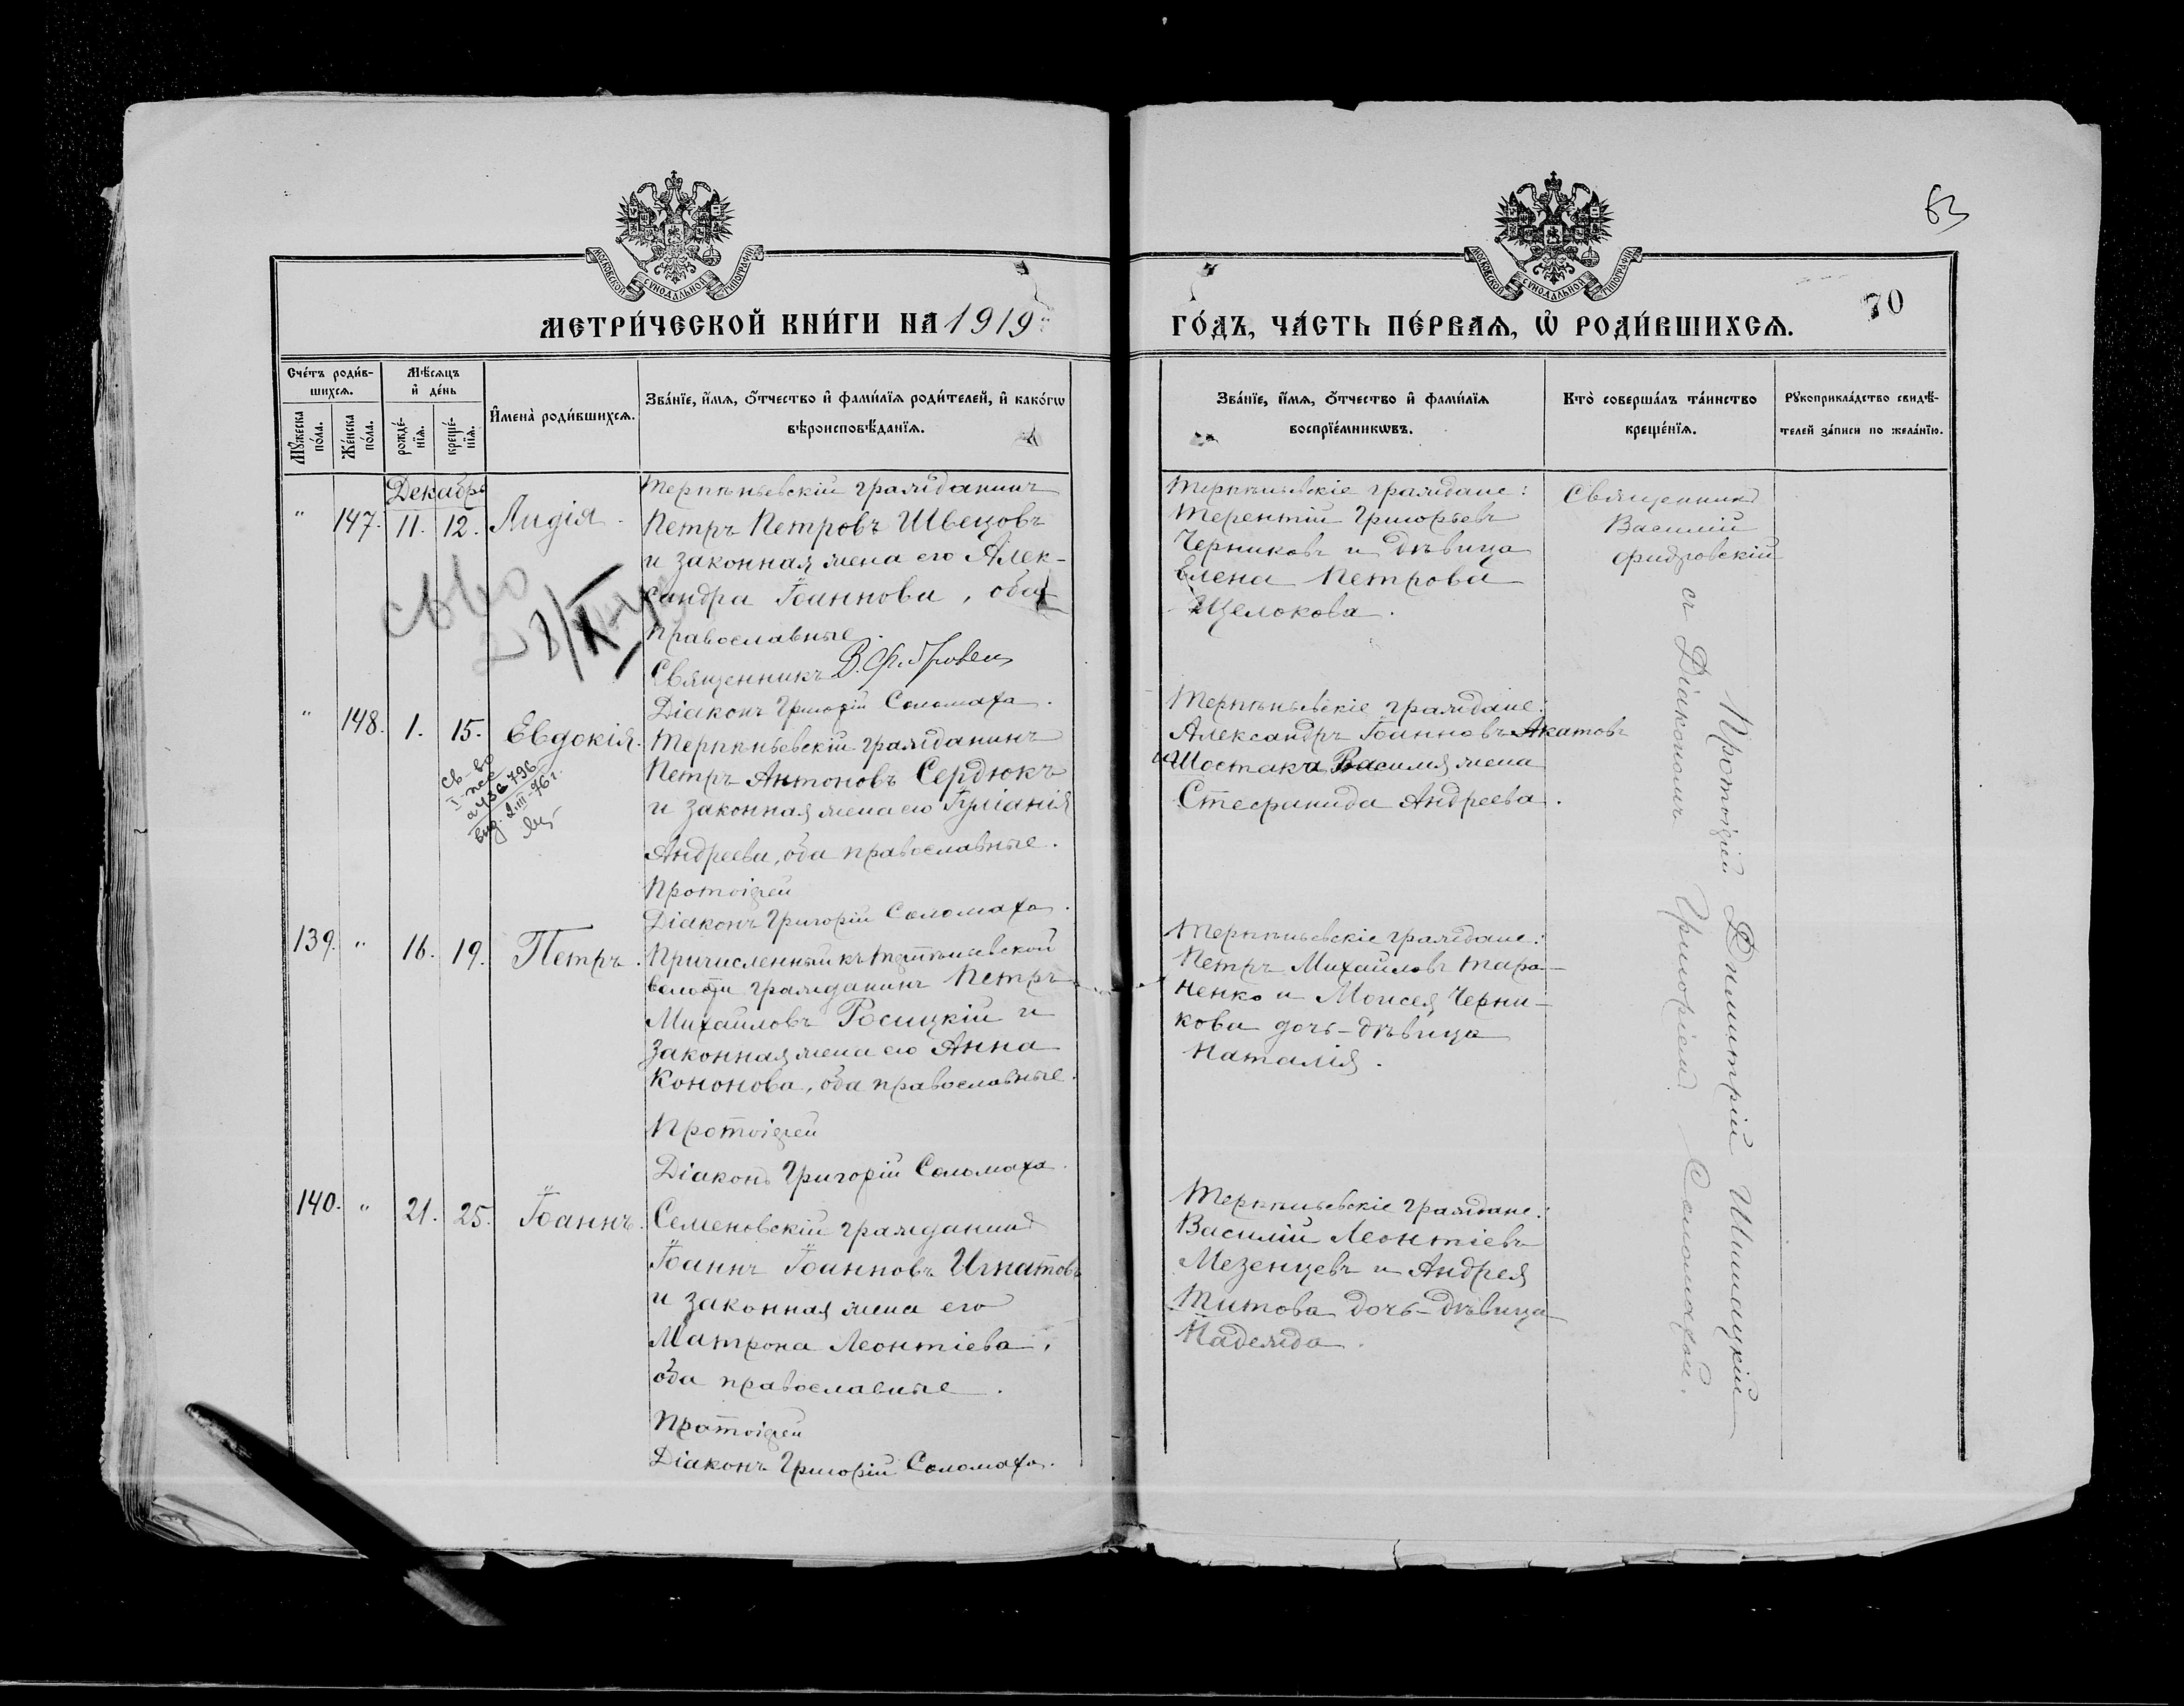 63
70
МОСКОВСКОЙ СѴНОДАЛЬНОЙ ТИПОГРАФІИ
МОСКОВСКОЙ СѴНОДАЛЬНОЙ ТИПОГРАФІИ
МЕТРИ́ЧЕСКОЙ КНИ́ГИ НА 1919
ГО́ДЪ, ЧА́СТЬ ПЕ́РВАѦ, Ѡ҆ РОДИ́ВШИХСѦ.
Сче́тъ роди́в-
шихсѧ.
Мꙋ́жеска
по́ла.
Же́нска
по́ла.
Мѣ́сѧцъ
и҆ де́нь
рожде́-
нїѧ.
креще́-
нїѧ.
И҆мена̀ роди́вшихсѧ.
Зва́нїе, и҆́мѧ, ѻ҆́тчество и҆ фами́лїѧ роди́телей, и҆ како́гѡ
вѣроисповѣ́данїѧ.
Зва́нїе, и҆́мѧ, ѻ҆́тчество и҆ фами́лїѧ
воспрїе́мникѡвъ.
Кто̀ соверша́лъ та́инство
креще́нїѧ.
Рꙋкоприкла́дство свидѣ́-
телей за́писи по жела́нїю.
Декабрь
" 147. 11. 12. Лидія.
Терпѣньевскій гражданинъ
Петръ Петровъ Швецовъ
и законная жена его Алек-
сандра Іоаннова, оба
православные.
Священникъ
Діаконъ Григорій Соломаха.
Терпѣньевскіе граждане:
Терентій Григорьевъ
Черниковъ и дѣвица
Елена Петрова
Щелокова.
Священникъ
Василій
св-во
28/XI
" 148. 1. 15. Евдокія.
св-во
796
выд. 2.III-76 г.
Терпѣньевскій гражданинъ
Петръ Антоновъ Сердюкъ
и законная жена его Іуліанія
Андреева, оба православные.
Протоіерей
Діаконъ Григорій Соломаха.
Терпѣньевскіе граждане:
Александръ Іоанновъ Акатовъ
и Шостака Василія жена
Стефанида Андреева.
139. " 16. 19. Петръ.
Причисленный къ Терпѣньевской
волости гражданинъ Петръ
Михайловъ Росицкій и
законная жена его Анна
Кононова, оба православные.
Протоіерей
Діаконъ Григорій Соломаха.
Терпѣньевскіе граждане:
Петръ Михайловъ Тара-
ненко и Моисея Черни-
кова дочь-дѣвица
Наталія.
140. " 21. 25. Іоаннъ.
Семеновскій гражданинъ
Іоаннъ Іоанновъ Игнатовъ
и законная жена его
Матрона Леонтіева,
оба православные.
Протоіерей
Діаконъ Григорій Соломаха.
Терпѣньевскіе граждане:
Василій Леонтіевъ
Мезенцевъ и Андрея
Титова дочь-дѣвица
Надежда.
Протоіерей Димитрій Шишацкій
съ Діакономъ Григоріемъ Соломахой.